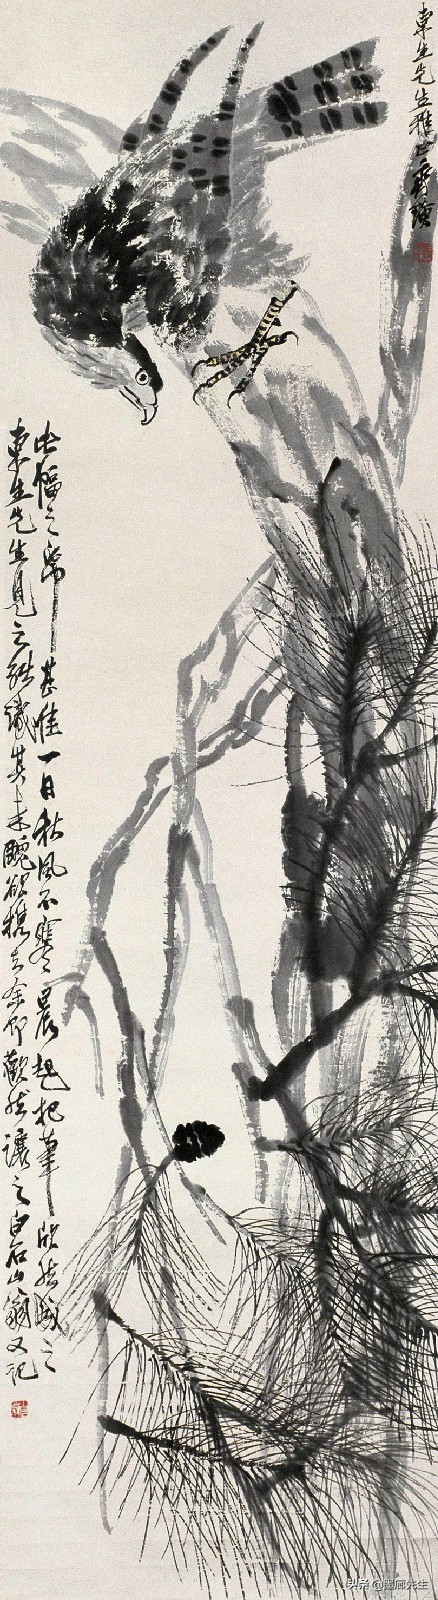 東生先生雅正齊璜
此幅之紙甚佳一日秋風不寒晨起把筆欣然成之
東生先生見之能識其未醜欲攜去余即歡然讓之白石山翁又記
头条@醒廊先生